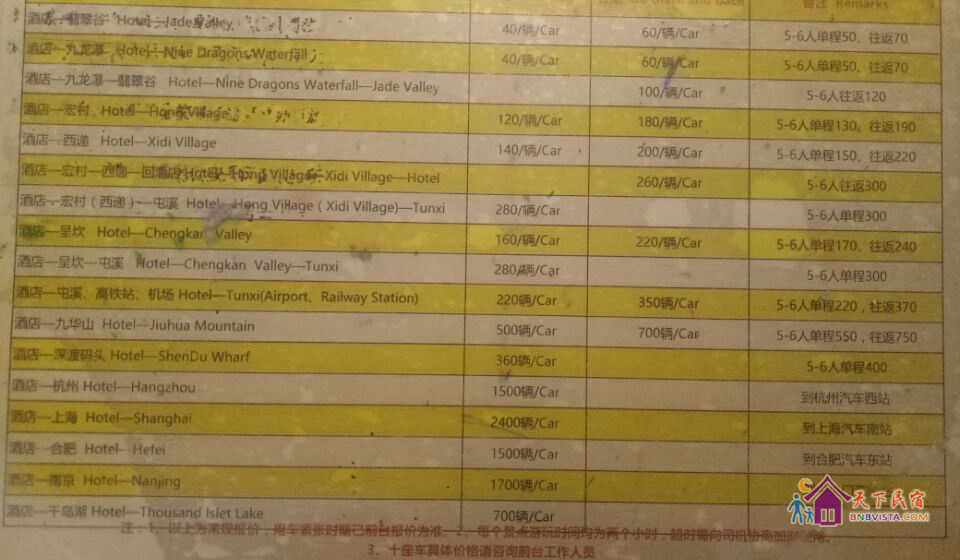 备注 Remarks
酒店—翡翠谷 Hotel—Jade Valley 40/辆/Car 60/辆/Car 5-6人单程50、往返70
酒店—九龙瀑 Hotel—Nine Dragons Waterfall 40/辆/Car 60/辆/Car 5-6人单程50、往返70
酒店—九龙瀑—翡翠谷 Hotel—Nine Dragons Waterfall—Jade Valley 100/辆/Car 5-6人往返120
酒店—宏村 Hotel—Hong Village 120/辆/Car 180/辆/Car 5-6人单程130、往返190
酒店—西递 Hotel—Xidi Village 140/辆/Car 200/辆/Car 5-6人单程150、往返220
酒店—宏村—西递—回酒店 Hotel—Hong Village—Xidi Village—Hotel 260/辆/Car 5-6人往返300
酒店—宏村（西递）—屯溪 Hotel—Hong Village（Xidi Village)—Tunxi 280/辆/Car 5-6人单程300
酒店—呈坎 Hotel—Chengkan Valley 160/辆/Car 220/辆/Car 5-6人单程170、往返240
酒店—呈坎—屯溪 Hotel—Chengkan Valley—Tunxi 280/辆/Car 5-6人单程300
酒店—屯溪、高铁站、机场 Hotel—Tunxi(Airport、Railway Station) 220辆/Car 350辆/Car 5-6人单程220，往返370
酒店—九华山 Hotel—Jiuhua Mountain 500辆/Car 700辆/Car 5-6人单程550，往返750
酒店—深渡码头 Hotel—ShenDu Wharf 360辆/Car 5-6人单程400
酒店—杭州 Hotel—Hangzhou 1500辆/Car 到杭州汽车西站
酒店—上海 Hotel—Shanghai 2400辆/Car 到上海汽车南站
酒店—合肥 Hotel—Hefei 1500辆/Car 到合肥汽车东站
酒店—南京 Hotel—Nanjing 1700辆/Car
酒店—千岛湖 Hotel—Thousand Islet Lake 700辆/Car
注：1、以上为常规报价，用车紧张时需已前台报价为准 2、每个景点游玩时间均为两个小时，超时需向司机协商加
3、十座车具体价格请咨询前台工作人员
天下民宿
BNBVISTA.COM